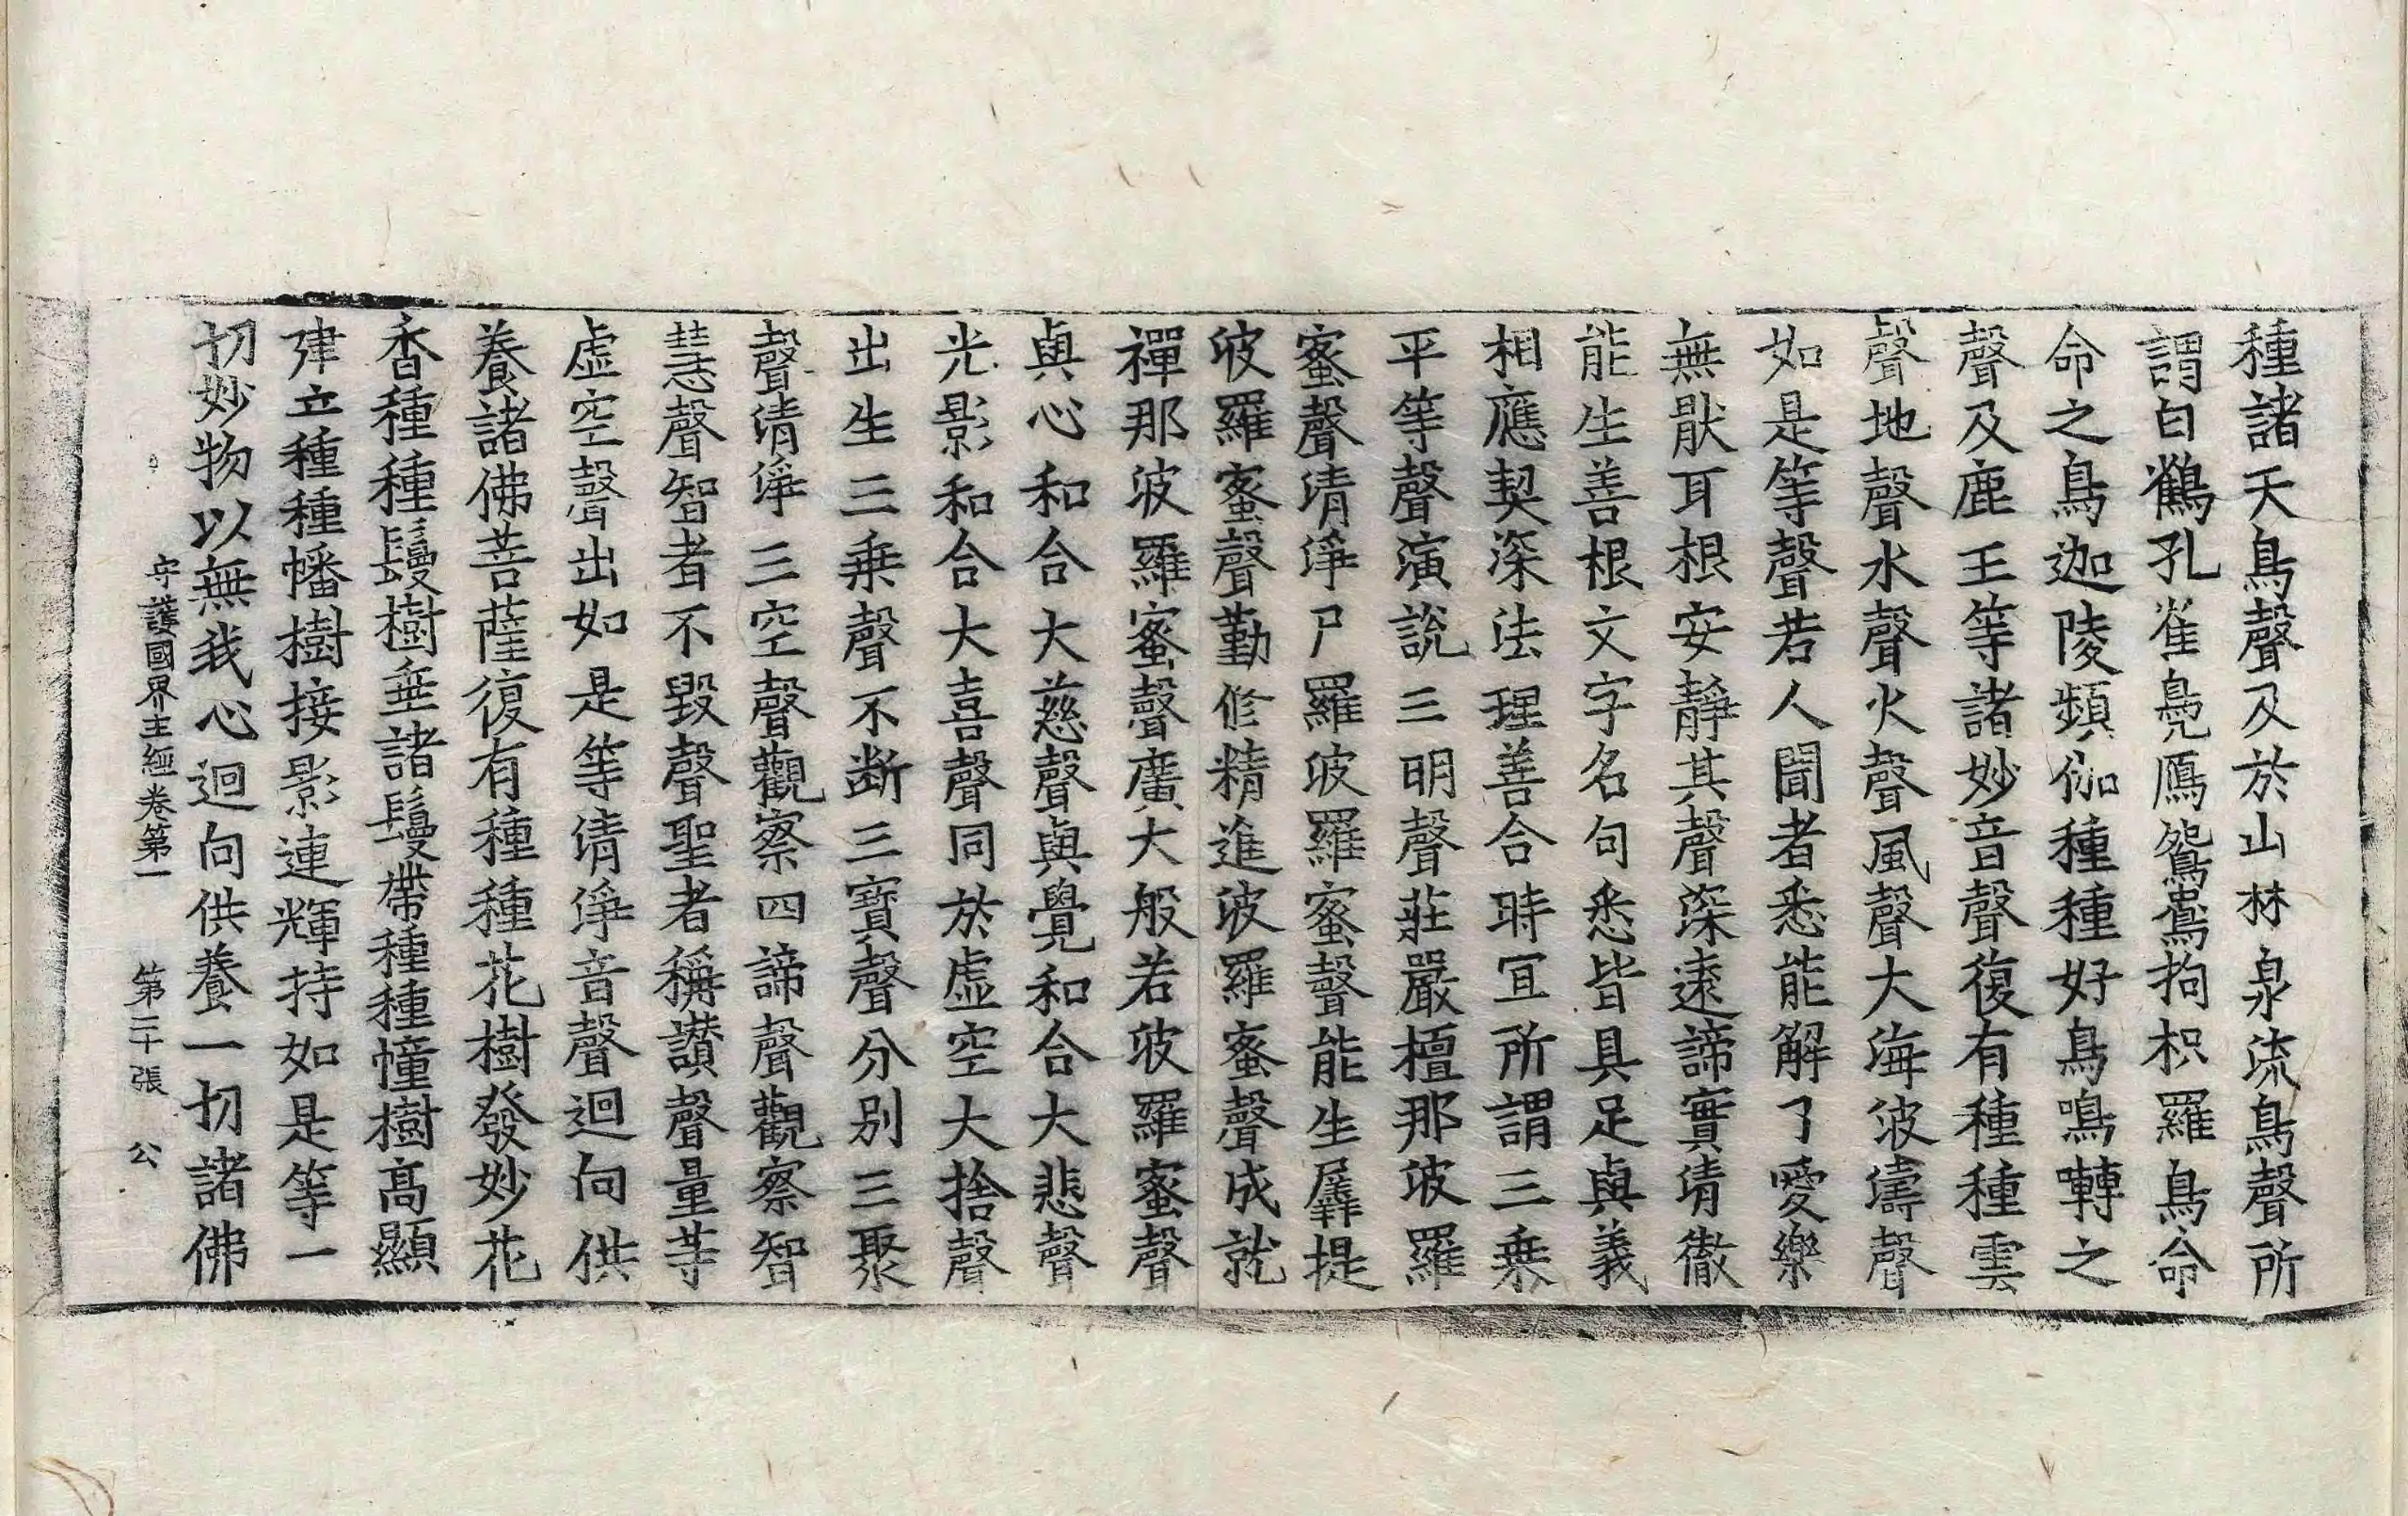 種諸天鳥聲及於山林泉流鳥聲所
謂白鶴孔雀鳧鴈鴛鴦拘枳羅鳥命
命之鳥迦陵頻伽種種好鳥鳴囀之
聲及鹿王等諸妙音聲復有種種雲
聲地聲水聲火聲風聲大海波濤聲
如是等聲若人聞者悉能解了愛樂
無猒耳根安靜其聲深遠諦實清徹
能生善根文字名句悉皆具足與義
相應契深法理善合時宜所謂三乘
平等聲演說三明聲莊嚴檀那波羅
蜜聲清淨尸羅波羅蜜聲能生羼提
波羅蜜聲勤修精進波羅蜜聲成就
禪那波羅蜜聲廣大般若波羅蜜聲
與心和合大慈聲與覺和合大悲聲
光影和合大喜聲同於虛空大捨聲
出生三乘聲不斷三寶聲分別三聚
聲清淨三空聲觀察四諦聲觀察智
慧聲智者不毀聲聖者稱讚聲量等
虛空聲出如是等清淨音聲迴向供
養諸佛菩薩復有種種花樹發妙花
香種種鬘樹垂諸鬘帶種種幢樹高顯
建立種種幡樹接影連輝持如是等一
切妙物以無我心迴向供養一切諸佛
守護國界主經卷第一 第二十張 公